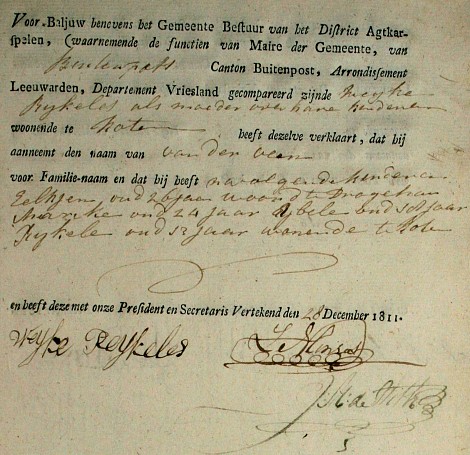 Voor Baljuw benevens het Gemeente Bestuur van het District Agtkar-
spelen, (waarnemende de functien van Maire der Gemeente, van
Buitenpost Canton Buitenpost, Arrondissement
Leeuwarden, Departement Vriesland gecompareerd zijnde Weyke
Rykeles als moeder over hare kinderen
woonende te Koten heeft dezelve verklaart, dat hij
aanneemt den naam van van der veen
voor Familie-naam en dat hij heeft navolgende kinderen
oud 26 jaar woont te Drogeham
oud 24 jaar Ybele oud 18 jaar
Rykele oud 12 jaar wonende te Koten
en heeft deze met onze President en Secretaris Vertekend den 28 December 1811.
Weyke Reykeles